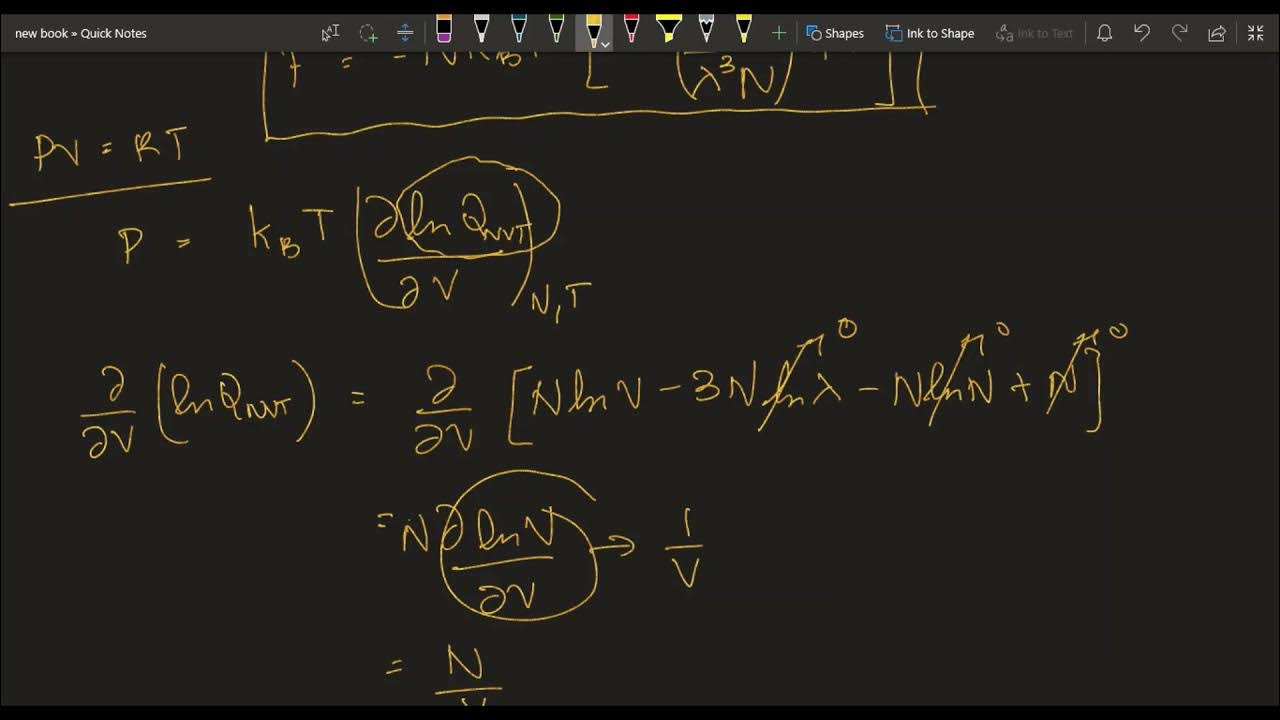 new book » Quick Notes
Shapes
Ink to Shape
Ink to Text
(λ³N)
PV = RT
P = k_B T (∂ ln Q_NVT / ∂V)_N,T
∂/∂V (ln Q_NVT) = ∂/∂V [N ln V − 3N ln λ − N ln N + N]
0 0 0
= N ∂ ln V / ∂V → 1/V
= N/V